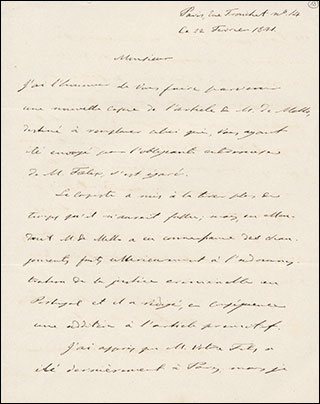 Paris, rue Tronchet nº 14
Le 12 Février 1841
Monsieur
J'ai l'honneur de vous faire parvenir
une nouvelle copie de l'article de M. de Mello,
destiné à remplacer celui qui, vous ayant
été envoyé par l'obligeante entremise
de M. Fœlix, s'est égaré.
Le copiste a mis à la tirer plus de
temps qu'il n'aurait fallu, mais, en atten-
dant M. de Mello a eu connaissance des chan-
gements faits ultérieurement à l'adminis-
tration de la justice criminelle en
Portugal et il a rédigé, en conséquence
une addition à l'article primitif.
J'ai appris que M. Votre Fils a
été dernièrement à Paris, mais je